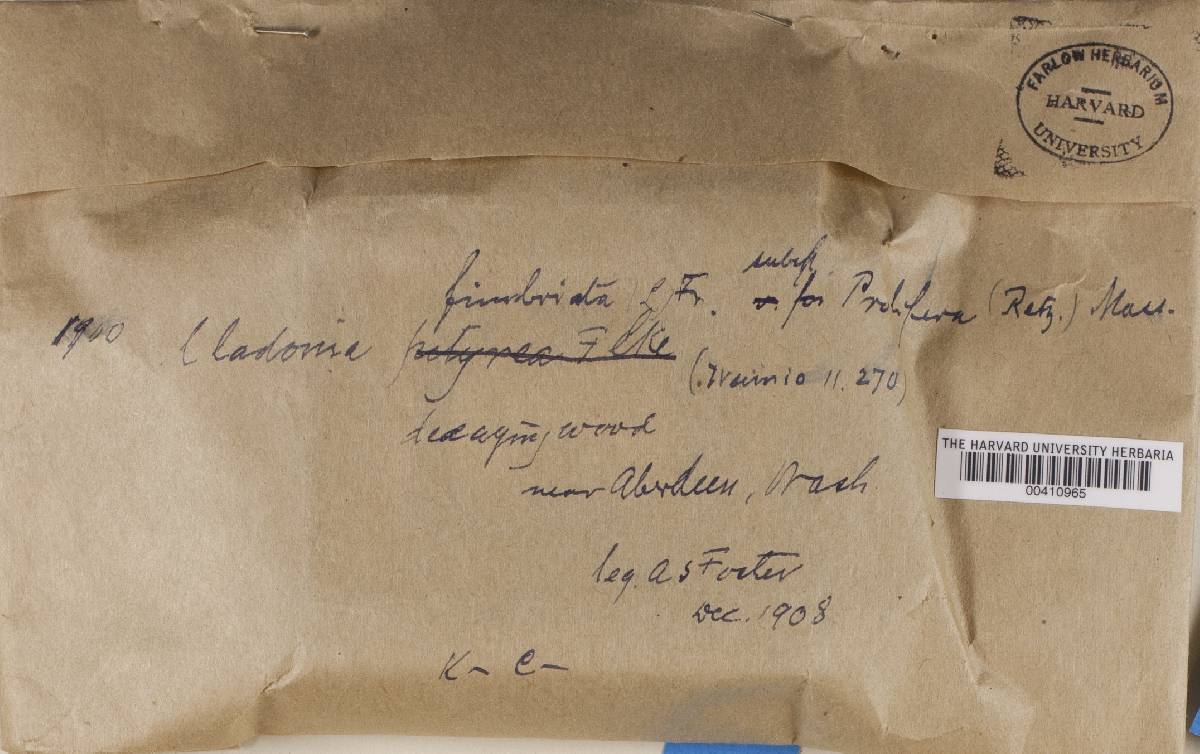 FARLOW HERBARIUM
HARVARD
UNIVERSITY
subsp.
fimbriata (L) Fr. for Prolifera (Retz.) Mass.
Cladonia pityrea Flke
(Wainio II. 270)
decaying wood
near Aberdeen, Wash
THE HARVARD UNIVERSITY HERBARIA
00410965
leg. A S Foster
Dec. 1908
K – C –